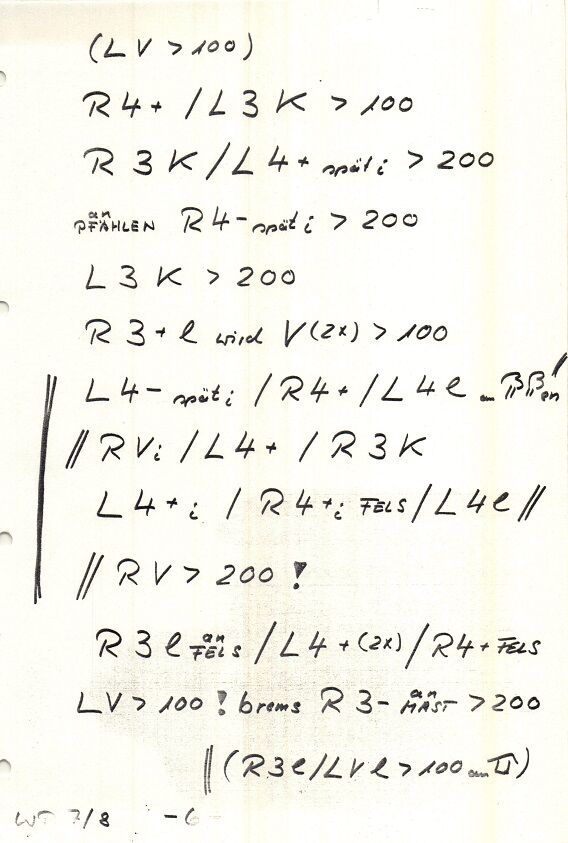 (LV > 100)
R4+ / L3K > 100
R3K / L4+ spät i > 200
an PFÄHLEN R4- spät i > 200
L3K > 200
R3+l wird V(2x) > 100
L4- spät i / R4+ / L4l an
// RVi / L4+ / R3K
L4+i / R4+i FELS / L4l //
// RV > 200 !
R3l an FELS / L4+(2x) / R4+ FELS
LV > 100 ! brems R3- an MAST > 200
// (R3l / LVl > 100 am
WP 7/8 -6